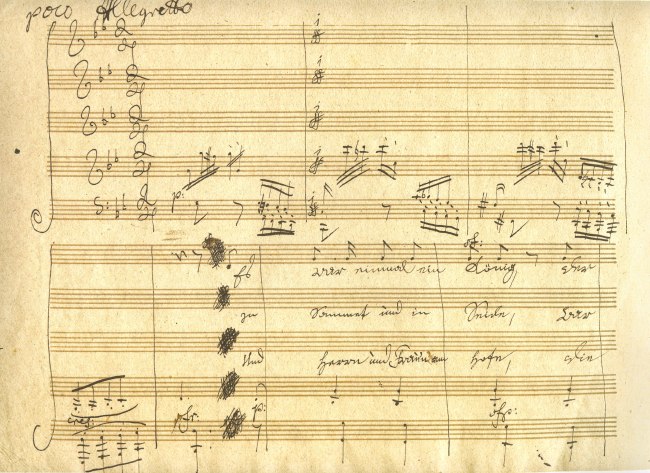 poco Allegretto
p:
Es war einmal ein König der
In Sammet und in Seide, war
Und Herrn und Fraun am Hofe, die
p: